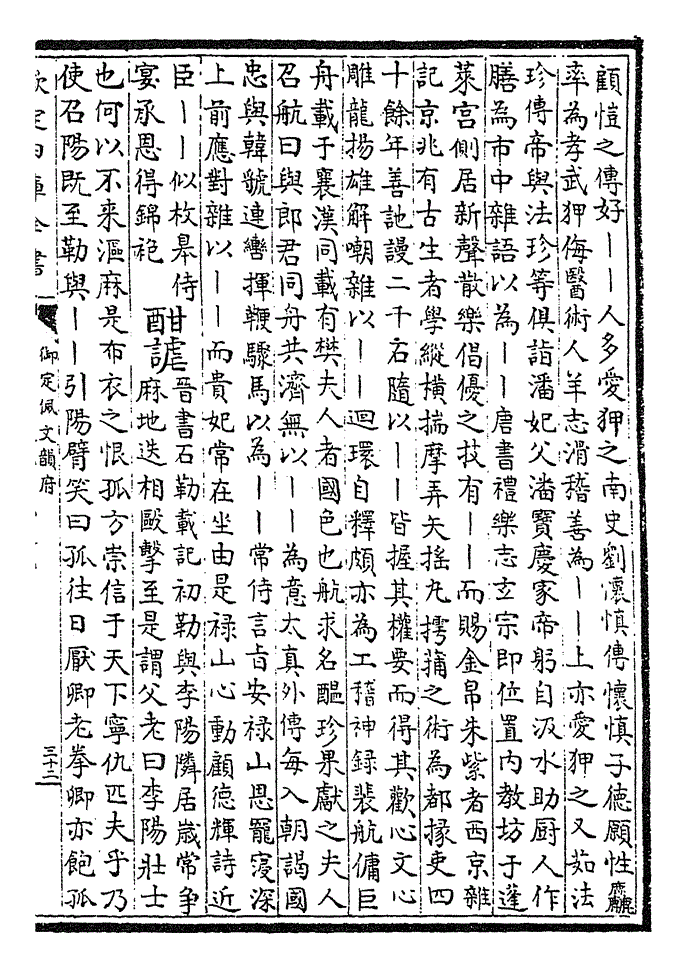 顧愷之傳好｜｜人多愛狎之南史劉懷慎傳懷慎子德願性麤
率為孝武狎侮醫術人羊志滑稽善為｜｜上亦愛狎之又茹法
珍傳帝與法珍等俱詣潘妃父潘寶慶家帝躬自汲水助厨人作
膳為市中雜語以為｜｜唐書禮樂志玄宗即位置内教坊于蓬
萊宫側居新聲散樂倡優之技有｜｜而賜金帛朱紫者西京雜
記京兆有古生者學縱横揣摩弄矢摇丸摴蒱之術為都掾吏四
十餘年善訑謾二千石隨以｜｜皆握其權要而得其歡心文心
雕龍揚雄解嘲雜以｜｜迴環自釋頗亦為工稽神録裴航傭巨
舟載于襄漢同載有樊夫人者國色也航求名醖珍果獻之夫人
召航曰與郎君同舟共濟無以｜｜為意太真外傳每入朝謁國
忠與韓虢連轡揮鞭驟馬以為｜｜常侍言旨安禄山恩寵寖深
上前應對雜以｜｜而貴妃常在坐由是禄山心動顧德輝詩近
臣｜｜似枚皋侍
宴承恩得錦袍
酣謔
晉書石勒載記初勒與李陽隣居嵗常爭
麻地迭相毆擊至是謂父老曰李陽壯士
也何以不来漚麻是布衣之恨孤方崇信于天下寧仇匹夫乎乃
使召陽既至勒與｜｜引陽臂笑曰孤往日厭卿老拳卿亦飽孤
欽定四庫全書
御定佩文韻府
三十二